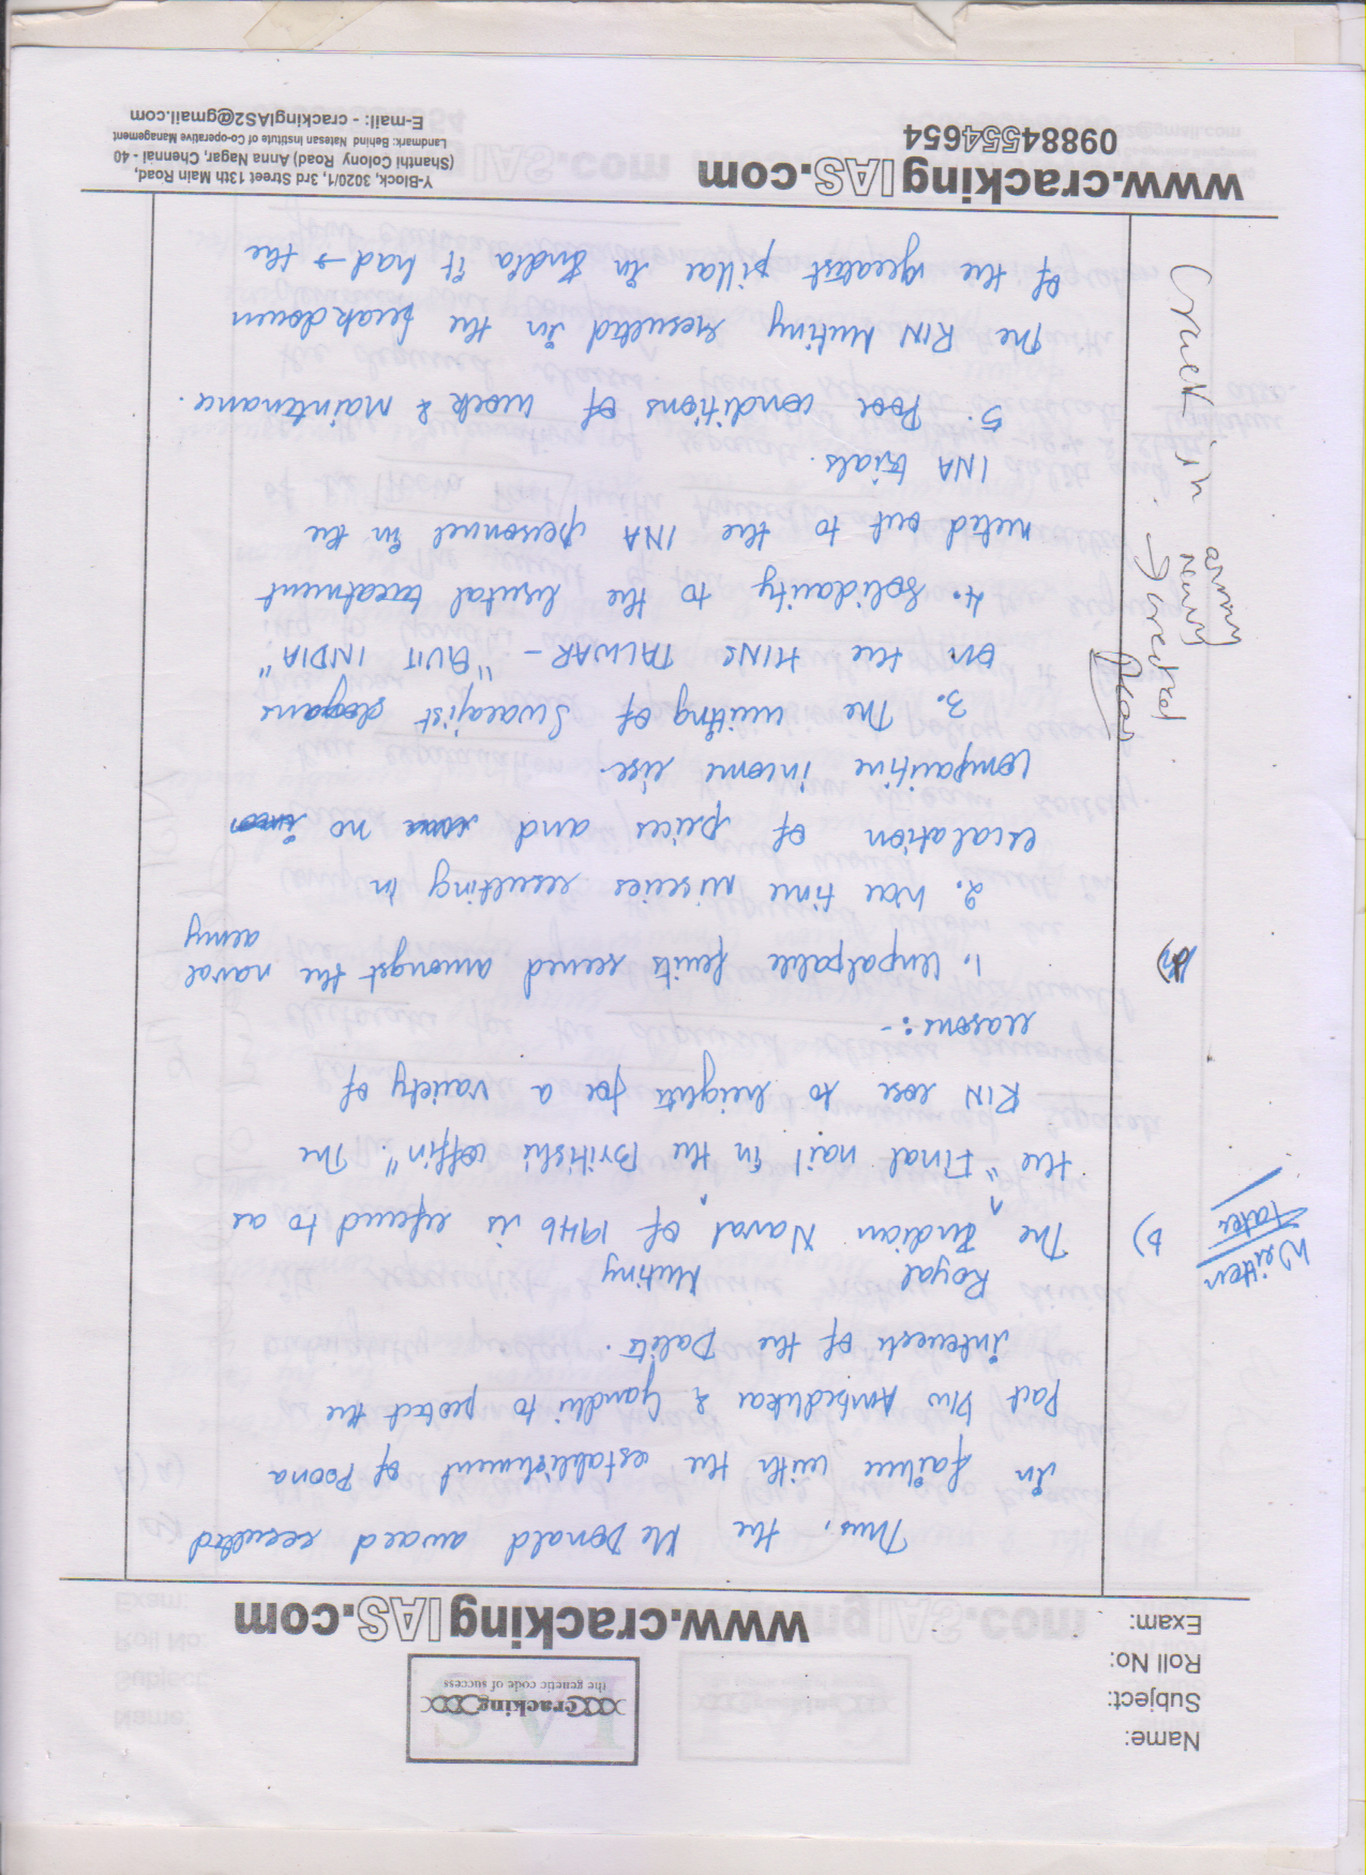 Name:
Subject:
Roll No:
Exam:
cracking
the genetic code of success
www.crackingIAS.com
Thus, the Mc Donald award resulted
in failure with the establishment of Poona
Pact b/w Ambedkar & Gandhi to protect the
interests of the Dalits.
Royal Mutiny
b) The Indian Naval of 1946 is refered to as
Written
Later
the "Final nail in the British coffin". The
RIN rose to heights for a variety of
reasons:-
1. Unpalpable fruits seemed amongst the naval
army
2. War time miseries resulting in
escalation of prices and no
comparitive income rise.
3. The writing of Swarajist slogans
on the HINS TALWAR - "QUIT INDIA"
4. Solidarity to the brutal treatment
meted out to the INA personnel in the
INA trials.
5. Poor conditions of work & maintenance.
The RIN Mutiny resulted in the breakdown
of the greatest pillar in India it had → the
Crack in
army
navy
www.crackingIAS.com
09884554654
Y-Block, 3020/1, 3rd Street 13th Main Road,
(Shanthi Colony Road) Anna Nagar, Chennai - 40
Landmark: Behind Natesan Institute of Co-operative Management
E-mail: - crackingIAS2@gmail.com